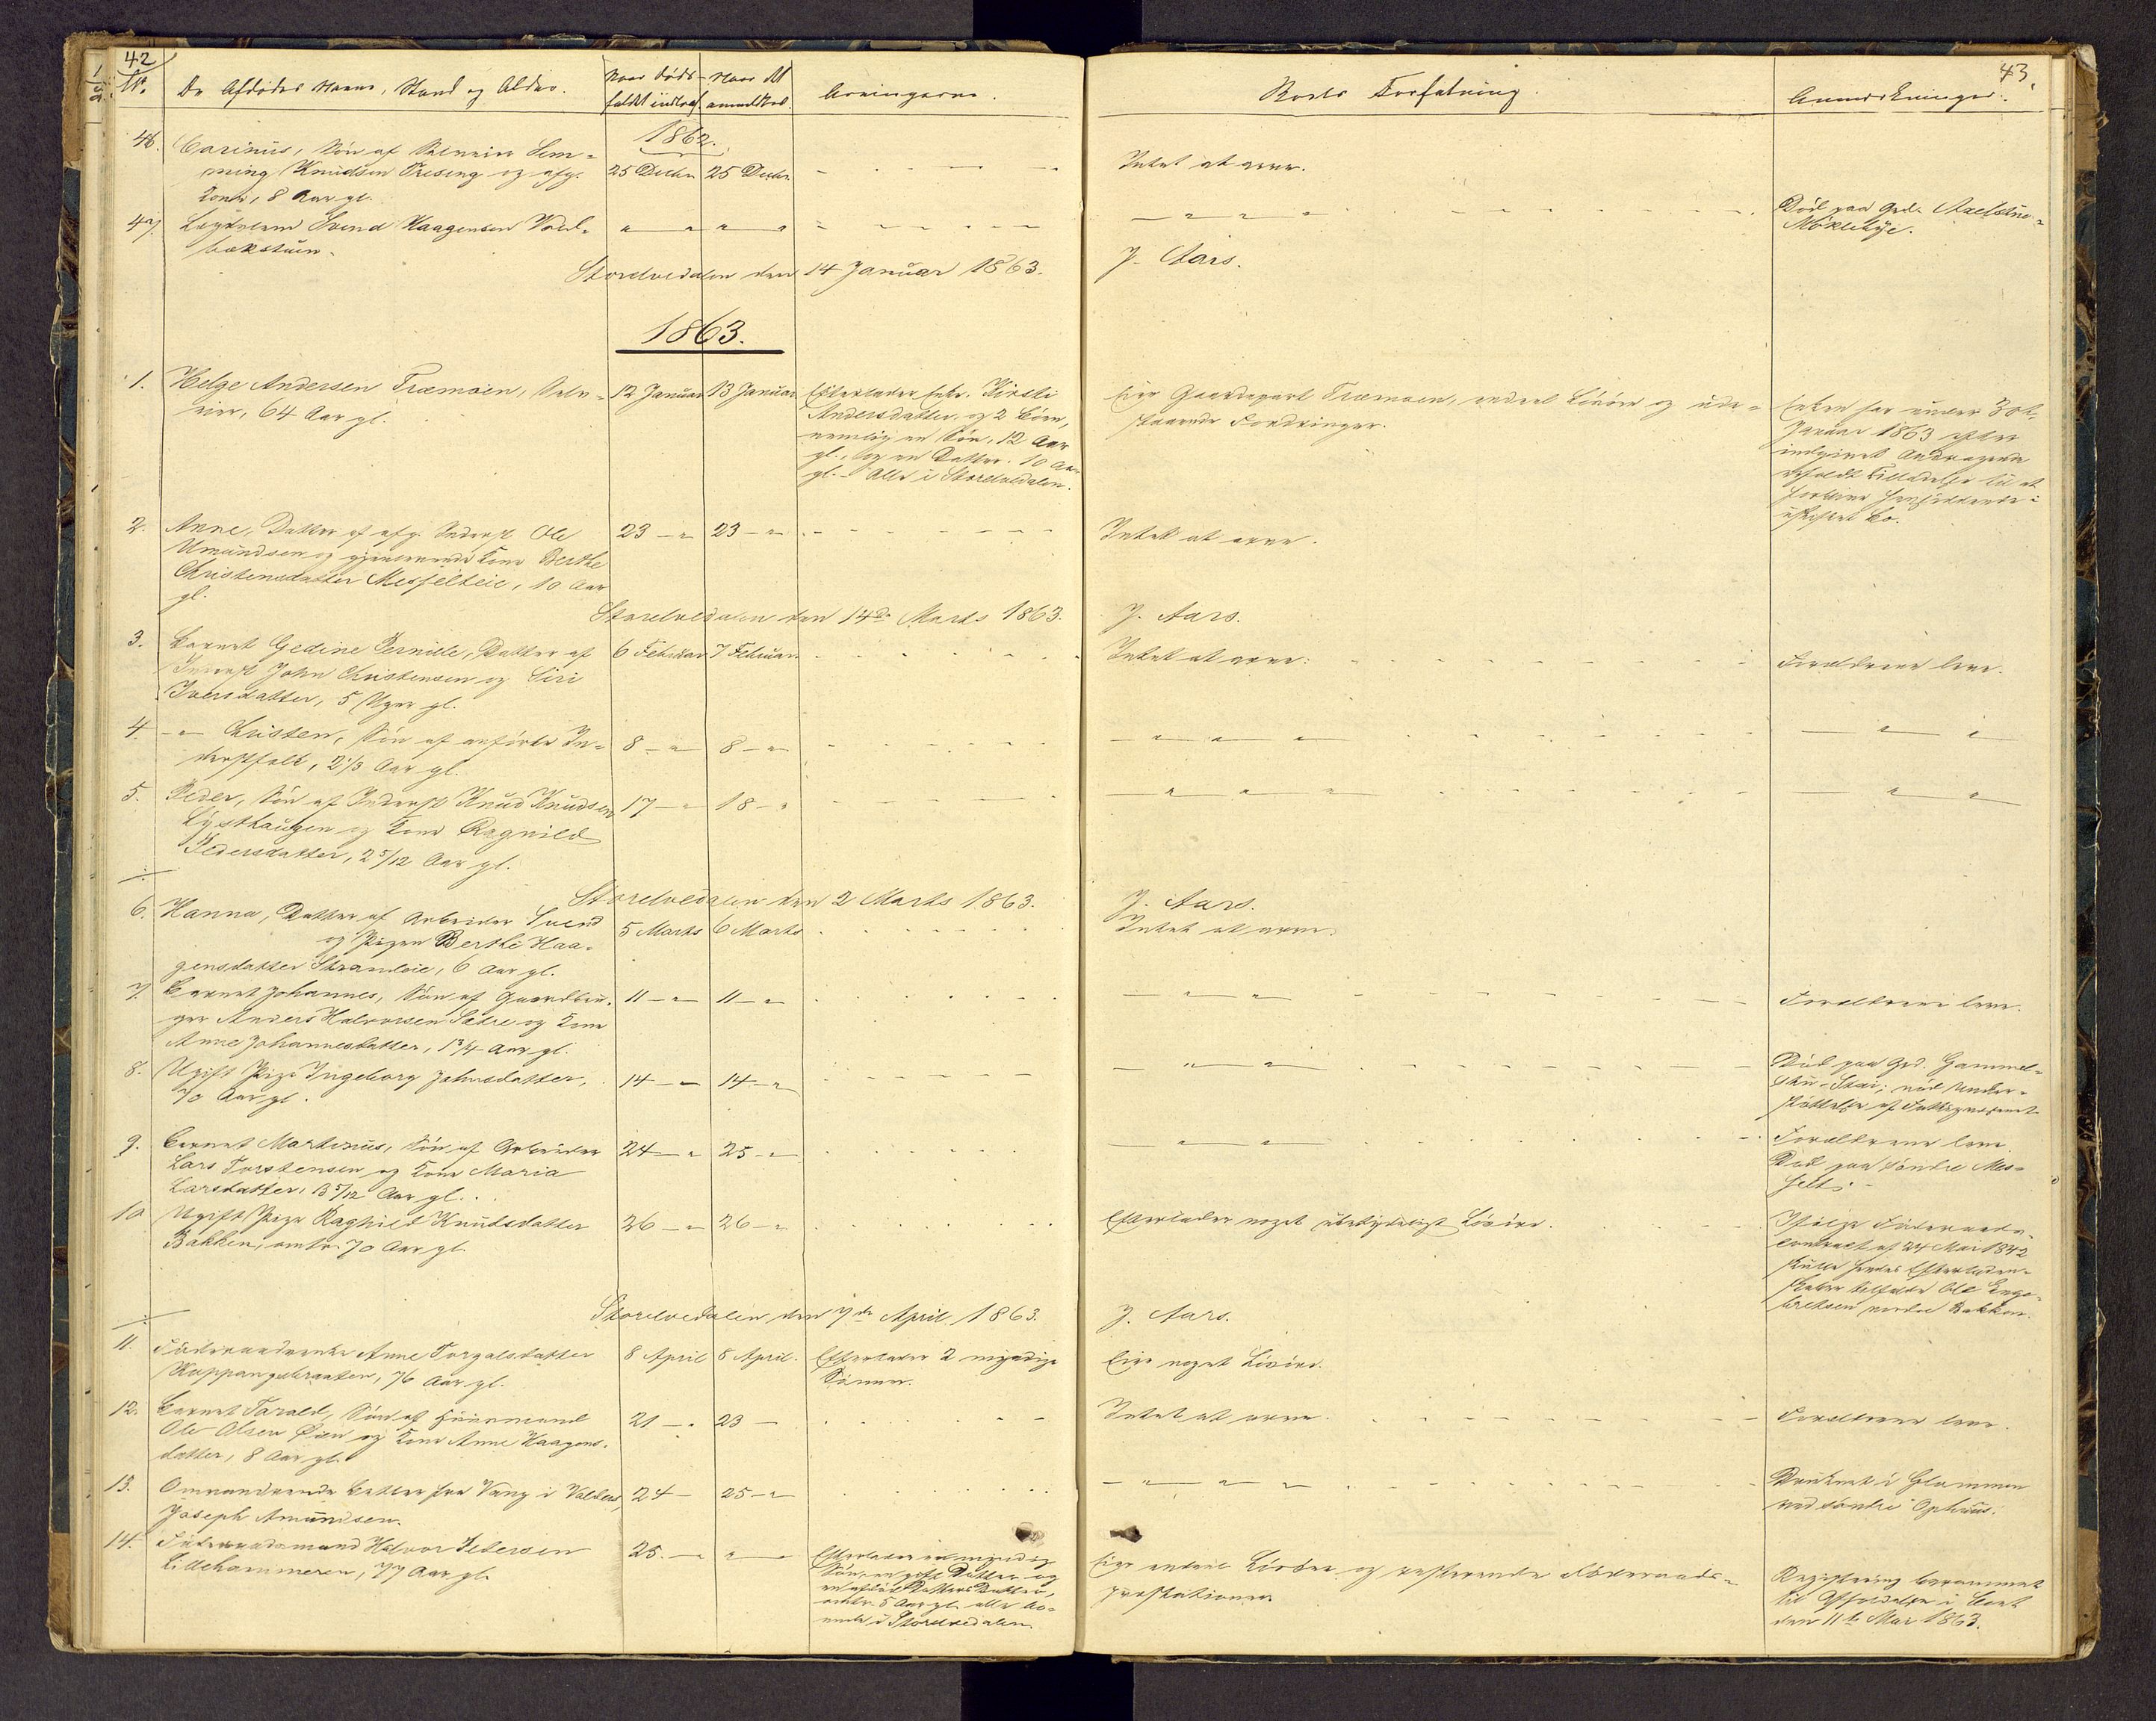 42
No.
De Afdødes Navne, Stand og Alder.
Naar Døds-
faldet indtraf
Naar det
anmeldtes.
Arvingerne.
1862.
46.
Carinus, Søn af Selveier Hem-
ming Knudsen Træseng og afg.
Kone, 8 Aar gl.
25 Decbr.
25 Decbr.
47.
Lægdslem Svend Haagensen
bækstuen.
Storelvedalen den 14 Januar 1863.
1863.
1.
Helge Andersen Træmoen, Selv-
eier, 64 Aar gl.
12 Januar
13 Januar
Efterlader Enke, Kirsti
Andersdatter, og 2 Børn,
nemlig en Søn, 12 Aar
gl., og en Datter, 10 Aar
gl. - Alle i Storelvedalen.
2.
Anne, Datter af afg. Inderst Ole
Amundsen og gjenlevende Kone Berthe
Christensdatter Messelteie, 10 Aar
gl.
23 - "
23 - "
Storelvedalen den 14de Marts 1863.
3.
Barnet Gedine Pernille, Datter af
Inderst John Christensen og Siri
Iversdatter, 5 Uger gl.
6 Februar
7 Februar
4.
- " - Christen, Søn af anførte In-
derstfolk, 2 1/3 Aar gl.
8 - "
8 - "
5.
Peder, Søn af Inderst Knud Knudsen
Lysthaugen og Kone Ragnild
Pedersdatter, 2 5/12 Aar gl.
17 - "
18 - "
Storelvedalen den 2 Marts 1863.
6.
Hanna, Datter af Arbeider Svend
og Pigen Berthe Haa-
gensdatter Strandeie, 6 Aar gl.
5 Marts
6 Marts
7.
Barnet Johannes, Søn af Gaardbru-
ger Anders Halvorsen Sætre og Kone
Anne Johannesdatter, 1 3/4 Aar gl.
11 - "
11 - "
8.
Ugift Pige Ingeborg Johnsdatter,
70 Aar gl.
14 - "
14 - "
9.
Barnet Martinus, Søn af Arbeider
Lars Torstensen og Kone Maria
Larsdatter, 3 5/12 Aar gl.
24 - "
25 - "
10
Ugift Pige Raghild Knudsdatter
Bakken, omtr. 70 Aar gl.
26 - "
26 - "
Storelvedalen den 7de April 1863.
11.
Føderaadsenke Anne Torgalsdatter
Koppangsbraaten, 76 Aar gl.
8 April
8 April.
Efterlader 2 myndige
Sønner.
12.
Barnet Tarald, Søn af Huusmand
Ole Olsen Øien og Kone Anne Haagens-
datter, 8 Aar gl.
21 - "
23 -
13.
Omvandrende Betler fra Vang i Valders,
Joseph Amundsen.
24 -
25 - "
14.
Føderaadsmand Halvor Pedersen
Lillehammeren, 77 Aar gl.
25. - "
" -
Efterlader en myndig
Søn, en gift Datter og
en afdød Datters Datter,
omtr. 5 Aar gl. alle bo-
ende i Storelvedalen.
43.
Boets Forfatning.
Anmærkninger.
Intet at arve.
- " - " - " -
Død paa Grd. Axelstuen-
Møklebye.
J. Aars.
Eier Gaardepart Træmoen, endeel Løsøre og ude-
staaende Fordringer.
Enken har under 30te
Januar 1863 efter
indgivet Andragende
erholdt Tilladelse til at
forblive hensiddende i
uskiftet Bo.
Intet at arve.
J. Aars.
Intet at arve.
Forældrene leve.
- " - " - " -
- " - " -
- " - " - " -
- " - " -
J. Aars.
Intet at arve.
- " - " -
Forældrene leve.
- " - " -
Død paa Grd. Gammel-
stu-Stai; nød Under-
støttelse af Fattigvæsenet
- " - " -
Forældrene leve
Død paa søndre Mes-
selt.
Efterlader noget ubetydeligt Løsøre.
Ifølge Føderaads-
contract af 24 Mai 1842
skulle hendes Efterladen-
skaber tilfalde Ole Enge-
bretsen nordre Bakken.
J. Aars.
Eier noget Løsøre.
Intet at arve.
Forældrene leve.
- " - " - " -
Druknet i Glommen
ved søndre Ophuus.
Eier endeel Løsøre og resterende Føderaads-
præstationer
Registrering berammet
til Afholdelse i Boet
den 11te Mai 1863.